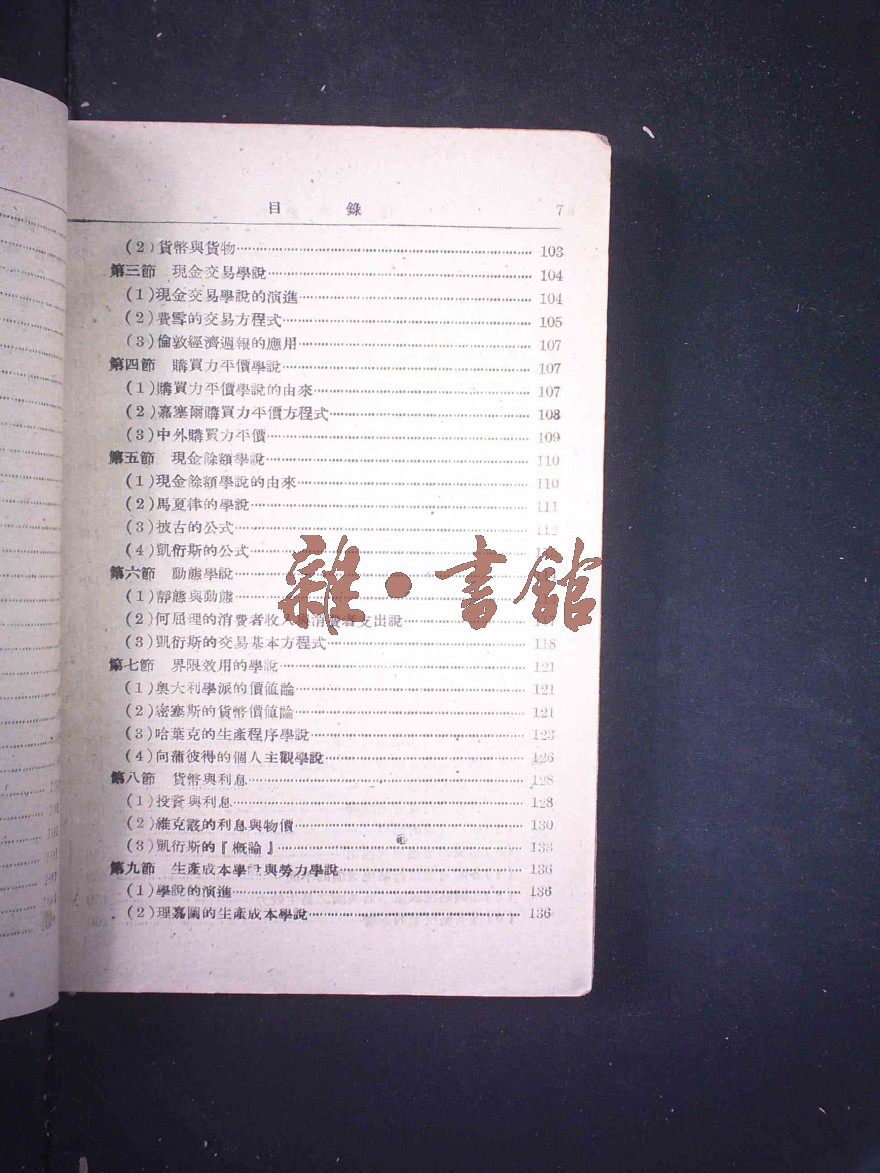 目　錄　7
(2)貨幣與貨物 103
第三節　現金交易學說 104
(1)現金交易學說的演進 104
(2)費雪的交易方程式 105
(3)倫敦經濟週報的應用 107
第四節　購買力平價學說 107
(1)購買力平價學說的由來 107
(2)嘉塞爾購買力平價方程式 108
(3)中外購買力平價 109
第五節　現金餘額學說 110
(1)現金餘額學說的由來 110
(2)馬夏律的學說 111
(3)披古的公式 112
(4)凱衍斯的公式
雜·書館
第六節　動態學說
(1)靜態與動態
(2)何屈理的消費者收入與消費者支出說
(3)凱衍斯的交易基本方程式 118
第七節　界限效用的學說 121
(1)奧大利學派的價値論 121
(2)密塞斯的貨幣價値論 121
(3)哈葉克的生產程序學說 123
(4)向蒲彼得的個人主觀學說 126
第八節　貨幣與利息 128
(1)投資與利息 128
(2)維克塞的利息與物價 130
(3)凱衍斯的『概論』 133
第九節　生產成本學說與勞力學說 136
(1)學說的演進 136
(2)理嘉圖的生產成本學說 136